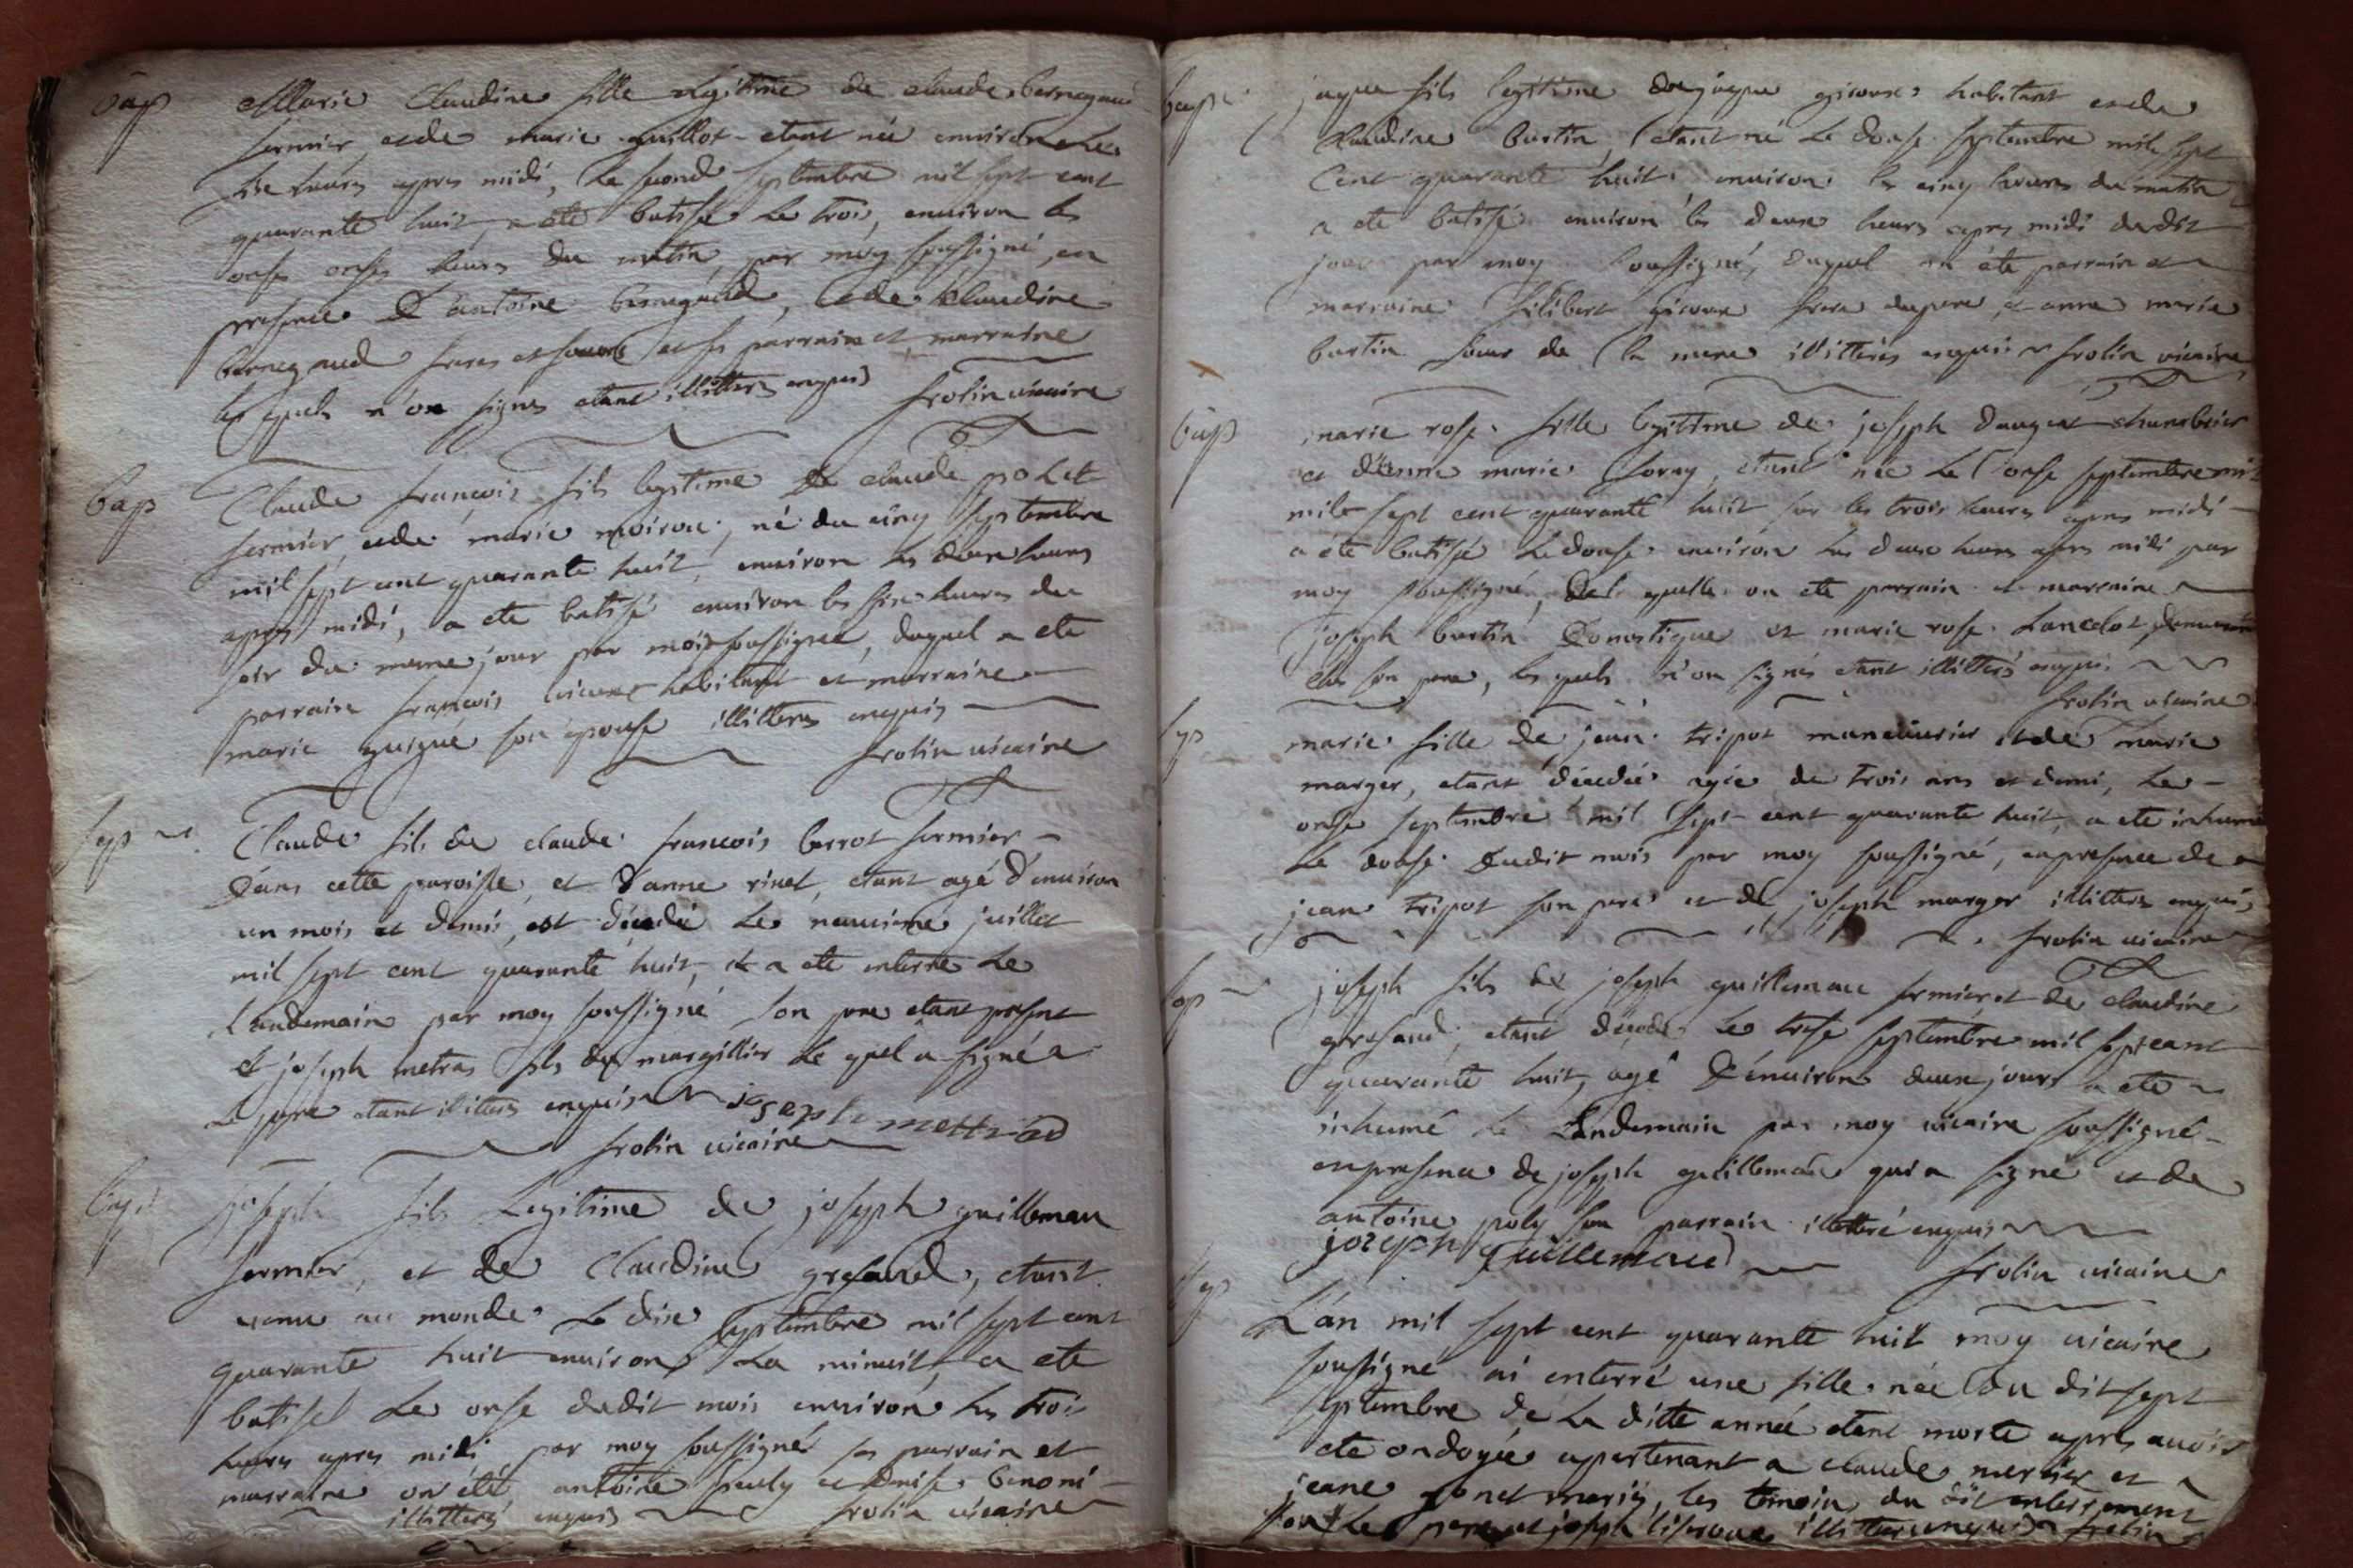 bap
Marie Claudine fille Legitime de claude bernegaud
fermier et de marie guillot etant née environ les
heures apres midi, Le second septembre mil sept cent
quarante huit, a ete batisée Le trois, environ les
onse onses heures du matin par moy soussigné, en
presence D'antoine bernegaud, et de Claudine
bernegaud freres et soeurs et ses parrain et marraine
lesquels n'on signes etant illitters enquis frolin vicaire
bap
Claude francois fils legitime De claude polet
fermier, et de marie moiroux, né du cinq septembre
mil sept cent quarante huit, environ les deux heures
apres midi, a ete batisé environ les six heures du
soir du meme jour par moi soussigné, duquel a ete
parrain francois habitant et marraine
marie guigue son epouse illitters enquis
frolin vicaire
sep
Claude fils de claude francois berrot fermier
Dans cette paroisse et d'anne rinet, etant agé d'environ
un mois et demis, est décedé Le neuvieme juillet
mil sept cent quarante huit, et a ete enterré Le
Landemain par moy soussigné son pere etant present
et joseph metras fils du margillier Le quel a signé
Le pere etant illitters enquis joseph mettras
frolin vicaire
bap
joseph fils Legitime de joseph guillemau
fermier, et de Claudine gresaud, etant
venu au monde Le dix septembre mil sept cent
quarante huit environ La minuit, a ete
batisé Le onse dudit mois environ les trois
heures apres midi par moy soussigné ses parrain et
marraine on été antoine pouly et denise benoni
illitters enquis frolin vicaire
bap
jaque fils legitime de jaque giroux habitant et de
Claudine burtin, etant né Le douse septembre mil sept
Cent quarante huit, environ les cinq heures du matin
a ete batisé environ les deux heures apres midi dudit
jour par moy soussigné, duquel on été parrain et
marraine filibert giroux frere du pere, et anne marie
burtin soeur de la mere illitters enquis frolin vicaire
bap
marie rose fille legitime de joseph dauget chambrier
et d'anne marie Coray, etant née Le onse septembre mil
mil sept cent quarante huit sur les trois heures apres midi
a été batisée Le douse environ les deux heures apres midi par
moy soussigné, De la quelle on ete parrain et marraine
joseph burtin Domestique et marie rose Lancelot demeurant
chés son pere, les quels n'on signés etant illitters enquis
frolin vicaire
sep
marie fille de jean tripot maneuvrier et de marie
marger, etant décedée agée de trois ans et demi, Le
onse septembre mil sept cent quarante huit, a ete inhumé
Le douse dudit mois par moy soussigné, en presence de
jean tripot son pere et de joseph marger illitters enquis
frolin vicaire
sep
joseph fils de joseph guillemau fermier et de claudine
gresaud, etant décedé Le treise septembre mil sept cent
quarante huit, agé D'environ deux jours a ete
inhumé Le Landemain par moy vicaire soussigné
en presence de joseph guillemau qui a signé et de
antoine poly son parrain illitteré enquis
joseph guillemaud
frolin vicaire
sep
L'an mil sept cent quarante huit moy vicaire
soussigné ai enterré une fille née du dit sept
septembre de La ditte année etant morte apres avoir
ete ondoyée apartenant a claude mercier et
jeane ponet mariés, les temoin du dit enterrement
sont Le pere et joseph illitters enquis frolin